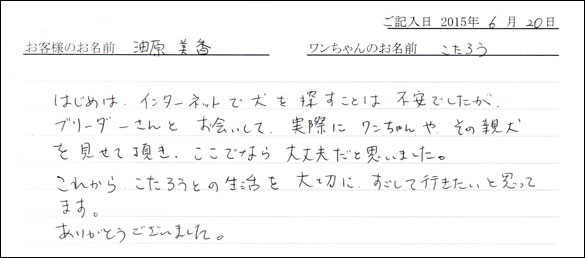 ご記入日 2015年 6月 20日
お客様のお名前 油原 美香 ワンちゃんのお名前 こたろう
はじめは、インターネットで犬を探すことは不安でしたが、
ブリーダーさんと お会いして、実際にワンちゃんや、その親犬
を見せて頂き、ここでなら大丈夫だと思いました。
これから、こたろうとの生活を大切に、すごして行きたいと思って
ます。
ありがとうございました。